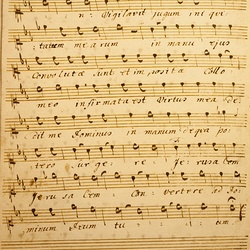 n: Vigilavit jugum ini qui
tatum mearum in manu ejus
Convolutæ sunt et impositæ Collo
meo infirmata est Virtus mea De
dit me Dominus in manum de qua po
tero surgere. Jerusalem
Jerusalem Convertere ad Do
minum Deum tuum